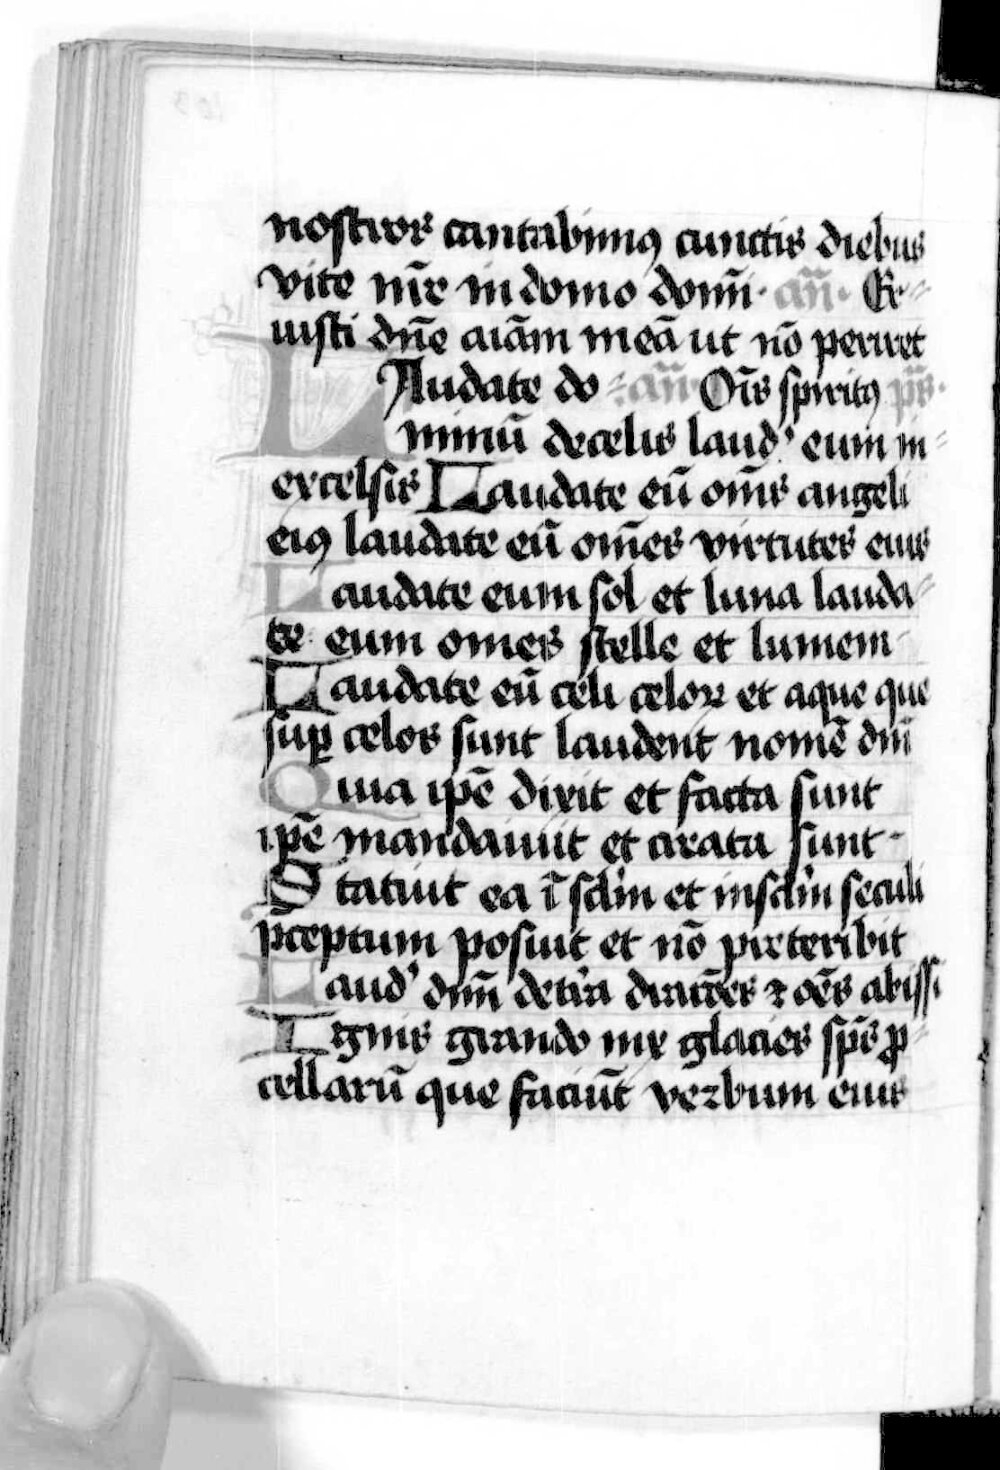 nostros cantabimꝰ cunctis diebus
vite nr̄e in domo domī. an̄. Er⸗
uisti dn̄e aīam meā ut nō periret
Laudate do⸗ an̄ Oīs spiritꝰ ps̄.
minū de celis laud' eum in⸗
excelsis Laudate eū om̄s angeli
eiꝰ laudate eū om̄es virtutes eius
Laudate eum sol et luna lauda⸗
te eum omes stelle et lumem
Laudate eū celi celoꝝ et aque que
suꝑ celos sunt laudent nomē dn̄i
Quia ip̄e dixit et facta sunt
ip̄e mandauit et creata sunt
Statuit ea ī sclm̄ et in sclm̄ seculi
p̄ceptum posuit et nō preteribit
Laud' dnm̄ de tr̄a dracōes ⁊ oēs abissi
Ignis grando nix glacies sp̄s ꝓ⸗
cellarū que faciūt verbum eius